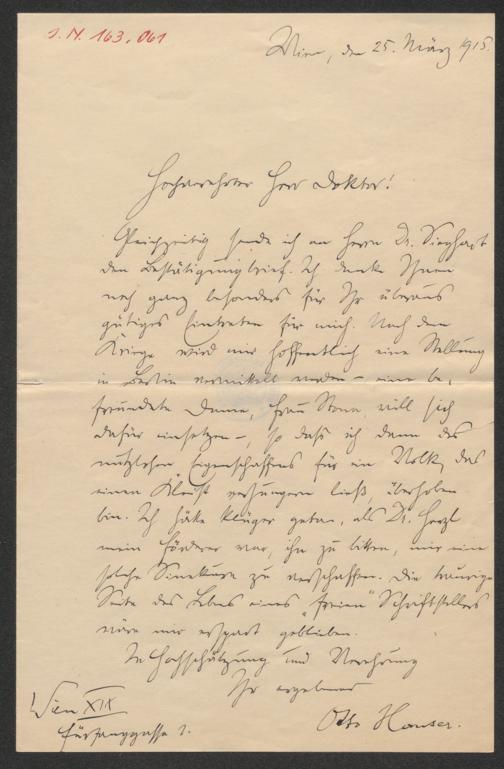 J. N. 163.061
Wien, den 25. März 1915.
Hochverehrter Herr Doktor!
Gleichzeitig sende ich an Herrn Dr. Sieghart
den Bestätigungsbrief. Ich danke Ihnen
noch ganz besonders für Ihr überaus
gütiges Eintreten für mich. Nach dem
Kriege wird mir hoffentlich eine Stellung
in Berlin vermittelt werden – eine be-
freundete Dame, Frau will sich
dafür einsetzen –, so daß ich dann des
nutzlosen Eigenschaffens für ein Volk, das
einen Kleist verhungern ließ, überhoben
bin. Ich hätte klüger getan, als Dr. Herzl
mein Förderer war, ihn zu bitten, mir eine
solche Sinekure zu verschaffen. Die traurige
Seite des Lebens eines „freien" Schriftstellers
wäre mir erspart geblieben.
In Hochschätzung und Verehrung
Ihr ergebener
Otto Hauser.
Wien XIX